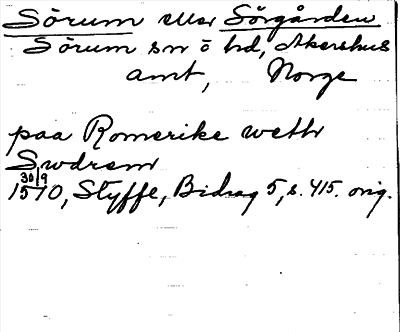 Sörum eller Sörgården
Sörum sn o hd, Akershus
amt, Norge
paa Romerike weth
Swdrem
30/9
1510, Styffe, Bidrag 5, s. 415. orig.